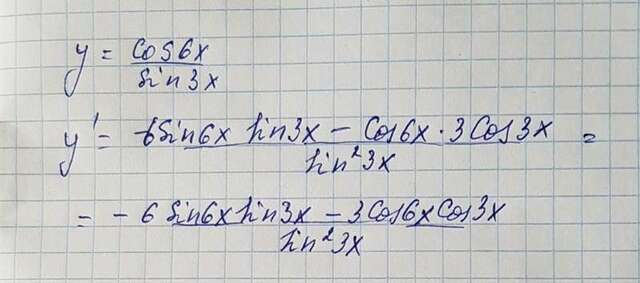 y = cos6x / sin3x
y' = -6sin6x sin3x - cos6x · 3cos3x / sin²3x =
= -6sin6x sin3x - 3cos6x cos3x / sin²3x